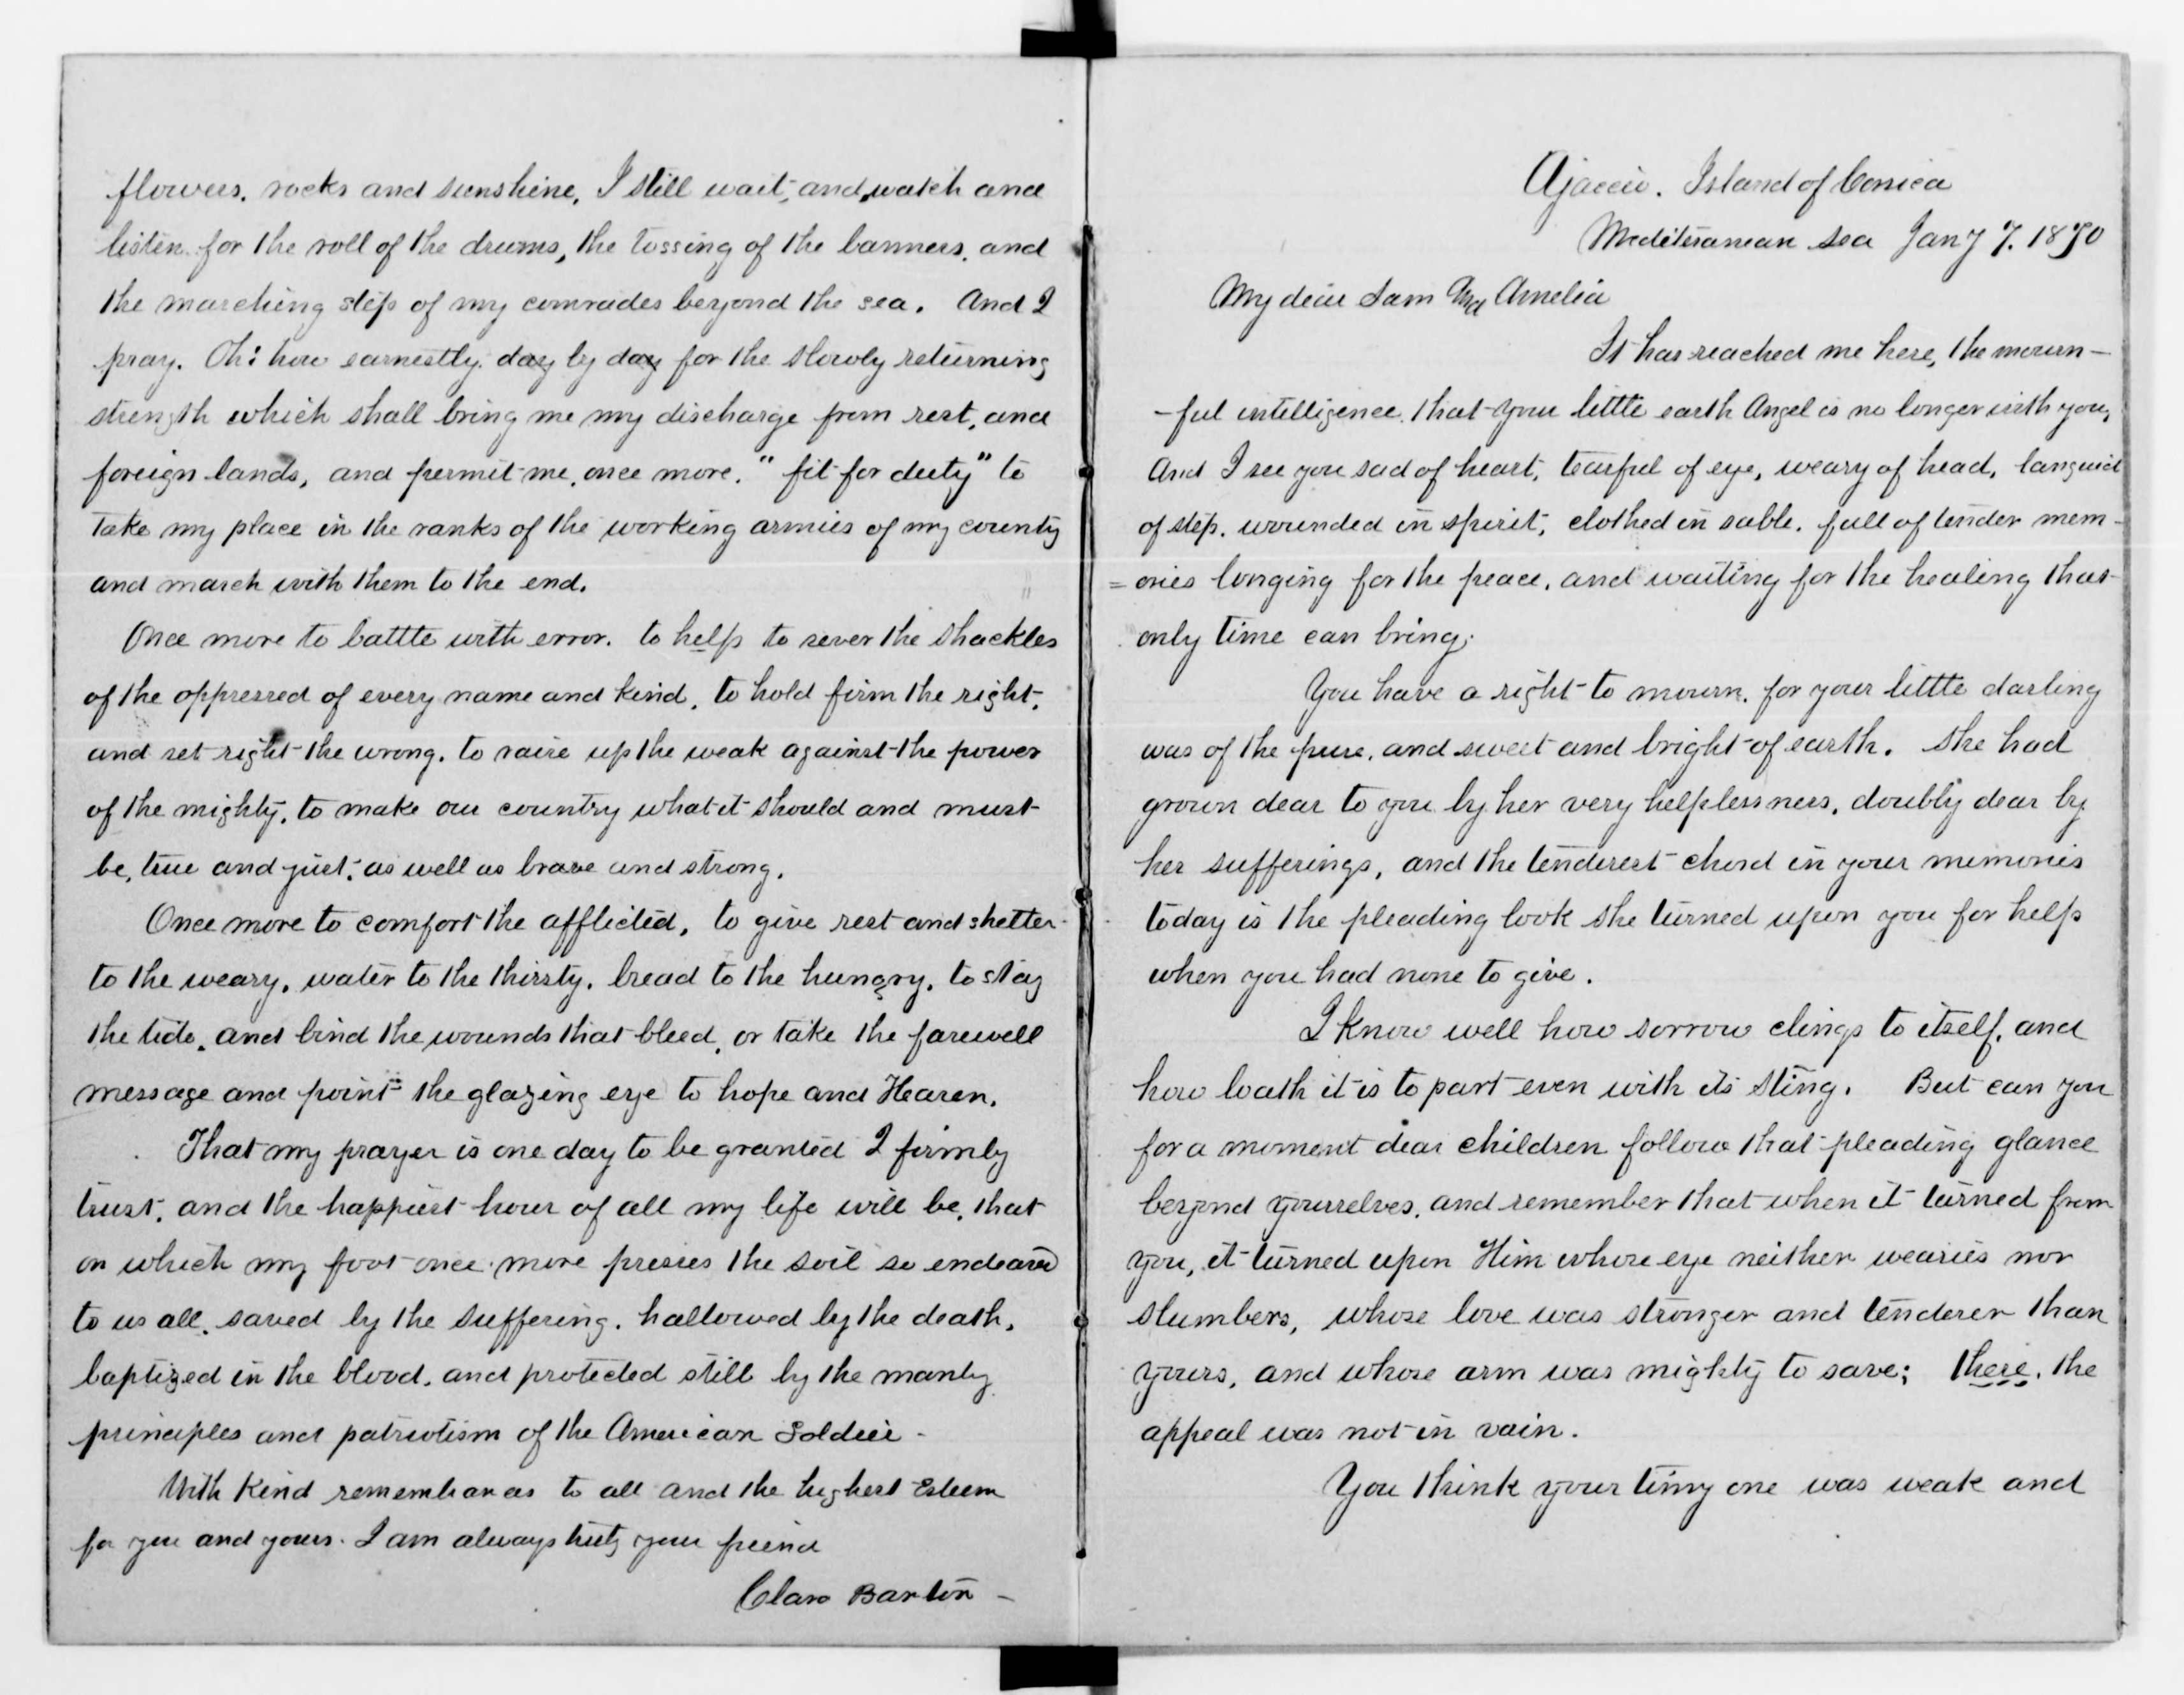 flowers, rocks and sunshine, I still wait, and watch and
listen for the roll of the drums, the tossing of the banners, and
the marching step of my comrades beyond the sea. And I
pray. Oh! how earnestly day by day for the slowly returning
strength which shall bring me my discharge from rest, and
foreign lands, and permit me, once more, "fit for duty" to
take my place in the ranks of the working armies of my county
and march with them to the end.
Once more to battle with error. to help to sever the shackles
of the oppressed of every name and kind, to hold firm the right,
and set right the wrong. to raise up the weak against the power
of the mighty, to make our country what it should and must
be, true and just, as well as brave and strong.
Once more to comfort the afflicted, to give rest and shelter
to the weary, water to the thirsty, bread to the hungry, to stay
the tide, and bind the wounds that bleed, or take the farewell
message and point the glazing eye to hope and Heaven.
That my prayer is one day to be granted I firmly
trust, and the happiest hour of all my life will be, that
on which my foot once more presses the soil so endeared
to us all, saved by the suffering, hallowed by the death,
baptized in the blood, and protected still by the manly
principles and patriotism of the American Soldier -
With kind remembrances to all and the highest Esteem
for you and yours. I am always truly your friend
Clara Barton -
Ajaccio. Island of Corsica
Mediteranean Sea Jany 7. 1870
My dear Sam And Amelia
It has reached me here, the mourn-
-ful intelligence that your little earth Angel is no longer with you,
And I see you sad of heart, tearful of eye, weary of head, languid
of step, wounded in spirit, clothed in sable, full of tender mem-
=ories longing for the peace, and waiting for the healing that
only time can bring.
You have a right to mourn, for your little darling
was of the pure, and sweet and bright of earth. She had
grown dear to you by her very helplessness, doubly dear by
her sufferings, and the tenderest chord in your memories
today is the pleading look she turned upon you for help
when you had none to give.
I know well how sorrow clings to itself, and
how loath it is to part even with its sting. But can you
for a moment dear children follow that pleading glance
beyond yourselves, and remember that when it turned from
you, it turned upon Him whose eye neither wearies nor
slumbers, whose love was stronger and tenderer than
yours, and whose arm was mighty to save; there, the
appeal was not in vain.
You think your tiny one was weak and